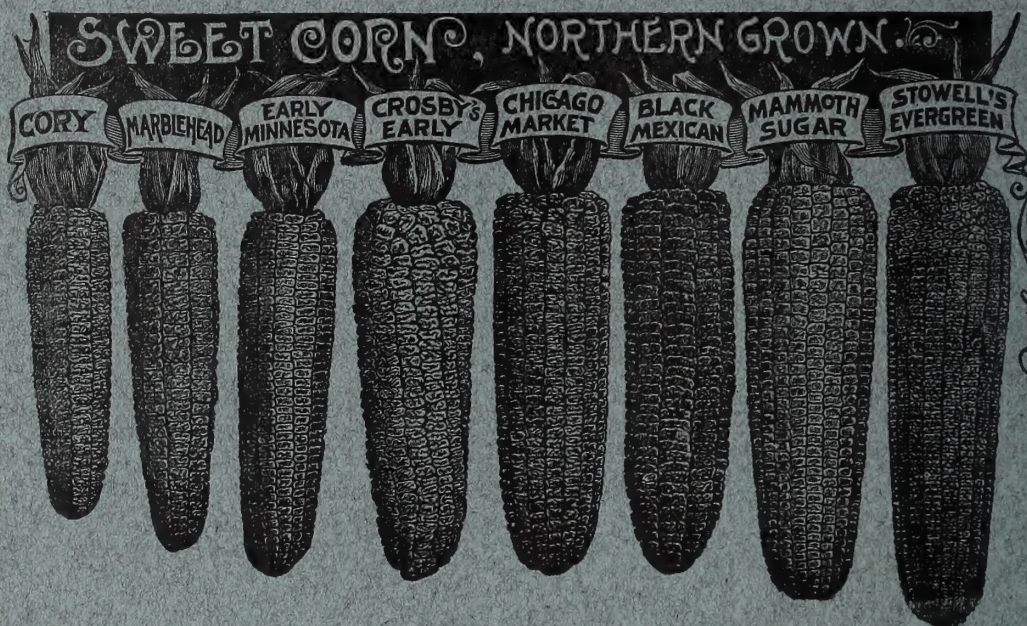 SWEET CORN, NORTHERN GROWN.
CORY
MARBLEHEAD
EARLY
MINNESOTA
CROSBY'S
EARLY
CHICAGO
MARKET
BLACK
MEXICAN
MAMMOTH
SUGAR
STOWELL'S
EVERGREEN